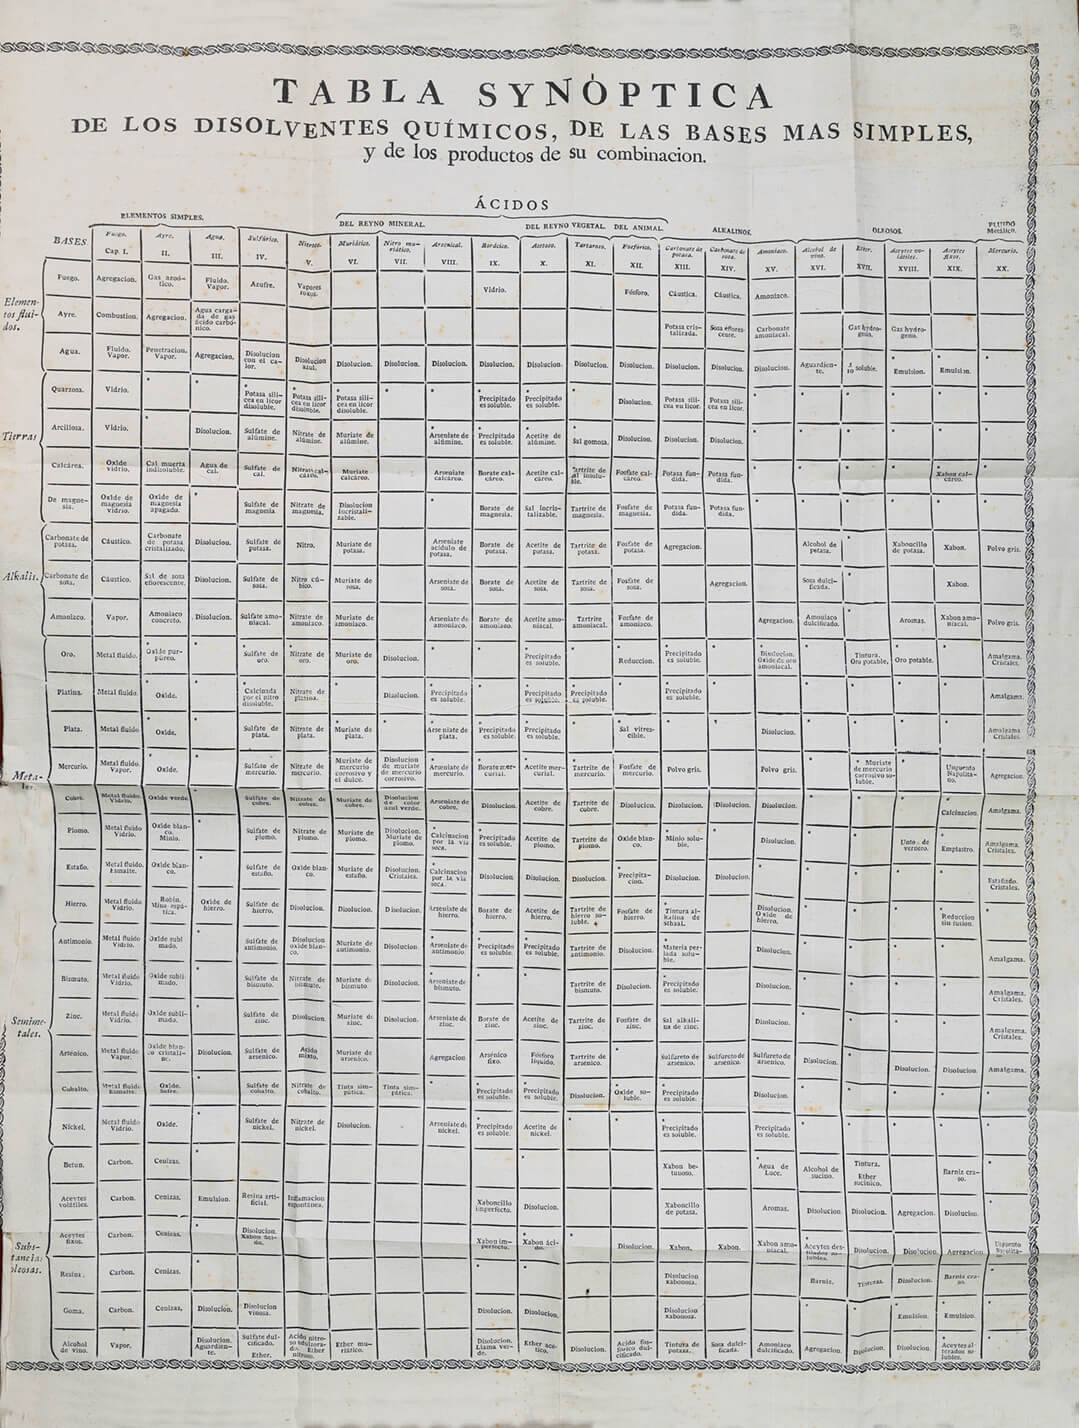 TABLA SYNÓPTICA
DE LOS DISOLVENTES QUÍMICOS, DE LAS BASES MAS SIMPLES,
y de los productos de su combinacion.
ÁCIDOS
ELEMENTOS SIMPLES. DEL REYNO MINERAL. DEL REYNO VEGETAL. DEL ANIMAL. ALKALINOS. OLEOSOS. FLUIDO Metálico.
BASES. Fuego. Ayre. Agua. Sulfúrico. Nitroso. Muriático. Nitro muriático. Arsenical. Borácico. Acetoso. Tartaroso. Fosfórico. Carbonate de potasa. Carbonate de sosa. Amoníaco. Alcohol de vino. Ether. Aceytes volátiles. Aceytes fixos. Mercurio.
Cap. I. II. III. IV. V. VI. VII. VIII. IX. X. XI. XII. XIII. XIV. XV. XVI. XVII. XVIII. XIX. XX.
Elementos fluidos.
Fuego. Agregacion. Gas azoótico. Fluido. Vapor. Azufre. Vapores roxos. Vidrio. Fósforo. Cáustica. Cáustica. Amoniaco.
Ayre. Combustion. Agregacion. Agua cargada de gas ácido carbónico. Potasa cristalizada. Sosa eflorescente. Carbonate amoniacal. Gas hydrogenio. Gas hydrogenio.
Agua. Fluido. Vapor. Penetracion. Vapor. Agregacion. Disolucion con el calor. Disolucion azul. Disolucion. Disolucion. Disolucion. Disolucion. Disolucion. Disolucion. Disolucion. Disolucion. Disolucion. Disolucion. Aguardiente. soluble. Emulsion. Emulsion.
Tierras
Quarzosa. Vidrio. Potasa silicea en licor disoluble. Potasa silicea en licor disoluble. Potasa silicea en licor disoluble. Precipitado es soluble. Precipitado es soluble. Disolucion. Potasa silicea en licor. Potasa silicea en licor.
Arcillosa. Vidrio. Disolucion. Sulfate de alúmine. Nitrate de alúmine. Muriate de alúmine. Arseniate de alúmine. Precipitado es soluble. Acetite de alúmine. Sal gomosa. Disolucion. Disolucion. Disolucion.
Calcárea. Oxide vidrio. Cal muerta indisoluble. Agua de cal. Sulfate de cal. Nitrate calcáreo. Muriate calcáreo. Arseniate calcáreo. Borate calcáreo. Acetite calcáreo. Tartrite de cal insoluble. Fosfate calcáreo. Potasa fundida. Potasa fundida. Xabon calcáreo.
De magnesia. Oxide de magnesia vidrio. Oxide de magnesia apagado. Sulfate de magnesia Nitrate de magnesia. Disolucion incristalizable. Borate de magnesia. Sal incristalizable. Tartrite de magnesia. Fosfate de magnesia. Potasa fundida. Potasa fundida.
Alkalis.
Carbonate de potasa. Cáustico. Carbonate de potasa cristalizado. Disolucion. Sulfate de potasa. Nitro. Muriate de potasa. Arseniate acídulo de potasa. Borate de potasa. Acetite de potasa. Tartrite de potasa. Fosfate de potasa. Agregacion. Alcohol de potasa. Xaboncillo de potasa. Xabon. Polvo gris.
Carbonate de sosa. Cáustico. Sal de sosa eflorescente. Disolucion. Sulfate de sosa. Nitro cúbico. Muriate de sosa. Arseniate de sosa. Borate de sosa. Acetite de sosa. Tartrite de sosa. Fosfate de sosa. Agregacion. Sosa dulcificada. Xabon.
Amoniaco. Vapor. Amoniaco concreto. Disolucion. Sulfate amoniacal. Nitrate de amoniaco. Muriate de amoniaco. Arseniate de amoniaco. Borate de amoniaco. Acetite amoniacal. Tartrite amoniacal. Fosfate de amoniaco. Agregacion. Amoniaco dulcificado. Aromas. Xabon amoniacal. Polvo gris.
Metales
Oro. Metal fluido. Oxide purpúreo. Sulfate de oro. Nitrate de oro. Muriate de oro. Disolucion. Precipitado es soluble. Reduccion. Precipitado es soluble. Disolucion. Oxide de oro amoniacal. Tintura. Oro potable. Oro potable. Amalgama. Cristales.
Platina. Metal fluido. Oxide. Calcinada por el nitro disoluble. Nitrate de platina. Disolucion. Precipitado es soluble. Precipitado es soluble. Precipitado es soluble. Precipitado es soluble. Amalgama.
Plata. Metal fluido. Oxide. Sulfate de plata. Nitrate de plata. Muriate de plata. Arseniate de plata. Precipitado es soluble. Precipitado es soluble. Sal vitrescible. Disolucion. Amalgama Cristales.
Mercurio. Metal fluido. Vapor. Oxide. Sulfate de mercurio. Nitrate de mercurio. Muriate de mercurio corrosivo y el dulce. Disolucion de muriate de mercurio corrosivo. Arseniate de mercurio. Borate mercurial. Acetite mercurial. Tartrite de mercurio. Fosfate de mercurio. Polvo gris. Polvo gris. Muriate de mercurio corrosivo soluble. Unguento Napolitano. Agregacion.
Cobre. Metal fluido. Vidrio. Oxide verde. Sulfate de cobre. Nitrate de cobre. Muriate de cobre. Disolucion de color azul verde. Arseniate de cobre. Disolucion. Acetite de cobre. Tartrite de cobre. Disolucion. Disolucion. Disolucion. Disolucion. Calcinacion. Amalgama.
Plomo. Metal fluido Vidrio. Oxide blanco. Minio. Sulfate de plomo. Nitrate de plomo. Muriate de plomo. Disolucion. Muriate de plomo. Calcinacion por la via seca. Precipitado es soluble. Acetite de plomo. Tartrite de plomo. Oxide blanco. Minio soluble. Disolucion. Emplastro. Amalgama Cristales.
Estaño. Metal fluido. Esmalte. Oxide blanco. Sulfate de estaño. Oxide blanco. Muriate de estaño. Disolucion. Cristales. Calcinacion por la via seca. Disolucion. Disolucion. Disolucion. Precipitacion. Disolucion. Disolucion. Cristales.
Hierro. Metal fluido Vidrio. Robin. Mina espática. Oxide de hierro. Sulfate de hierro. Disolucion. Disolucion. Disolucion. Arseniate de hierro. Borate de hierro. Acetite de hierro. Tartrite de hierro soluble. Fosfate de hierro. Tintura alkalina de Disolucion. Oxide de hierro. Reduccion sin fusion.
Semimetales.
Antimonio. Metal fluido Vidrio. Oxide sublimado. Sulfate de antimonio. Disolucion oxide blanco. Muriate de antimonio. Disolucion. Arseniate de antimonio. Precipitado es soluble. Precipitado es soluble. Tartrite de antimonio. Disolucion. Materia perlada soluble. Disolucion. Amalgama.
Bismuto. Metal fluido Vidrio. Oxide sublimado. Sulfate de bismuto. Nitrate de bismute. Muriate de bismuto Disolucion. Arseniate de bismuto. Tartrite de bismuto. Disolucion. Precipitado es soluble. Disolucion. Amalgama. Cristales.
Zinc. Metal fluido Vidrio. Oxide sublimado. Sulfate de zinc. Disolucion. Muriate de zinc. Disolucion. Arseniate de zinc. Borate de zinc. Acetite de zinc. Tartrite de zinc. Fosfate de zinc. Sal alkalina de zinc. Disolucion. Amalgama Cristales.
Arsénico. Metal fluido Vapor. Oxide blanco cristaline. Disolucion. Sulfate de arsénico. Acido mixto. Muriate de arsénico. Agregacion Arsénico fixo. Fósforo líquido. Tartrite de arsénico. Sulfureto de arsénico. Sulfureto de arsénico. Sulfureto de arsénico. Disolucion. Disolucion. Disolucion. Amalgama.
Cobalto. Metal fluido Esmalte. Oxide. Safre. Sulfate de cobalto. Nitrate de cobalto. Tinta simpática. Tinta simpática. Precipitado es soluble. Precipitado es soluble. Disolucion. Oxide soluble. Precipitado es soluble. Disolucion.
Nickel. Metal fluido Vidrio. Oxide. Sulfate de nickel. Nitrate de nickel. Disolucion. Arseniate de nickel. Precipitado es soluble. Acetite de nickel. Precipitado es soluble. Precipitado es soluble.
Substancias oleosas.
Betun. Carbon. Cenizas. Xabon betunoso. Agua de Luce. Alcohol de sucino. Tintura. Ether sucinico. Barniz craso.
Aceytes volátiles. Carbon. Cenizas. Emulsion. Resina artificial. Inflamacion espontánea. Xaboncillo imperfecto. Disolucion. Xaboncillo de potasa. Aromas. Disolucion Disolucion. Agregacion. Disolucion.
Aceytes fixos. Carbon. Cenizas. Disolucion. Xabon ácido. Xabon imperfecto. Xabon ácido. Disolucion. Xabon. Xabon. Xabon amoniacal. Disolucion. Disolucion. Agregacion.
Resina. Carbon. Cenizas. Disolucion xabonosa. Barniz. Tinturas. Disolucion. Barniz craso.
Goma. Carbon. Cenizas. Disolucion. Disolucion vinosa. Disolucion. Disolucion. Disolucion xabonosa. Emulsion. Emulsion.
Alcohol de vino. Vapor. Disolucion. Aguardiente. Sulfate dulcificado. Ether. Acido nitroso Ether nitroso. Ether muriático. Disolucion. Llama verde. Ether acético. Disolucion. Acido fosfórico dulcificado. Tintura de potasa. Sosa dulcificada. Amoniaco dulcificado. Agregacion. Disolucion. Disolucion. Aceytes alterados solubles.